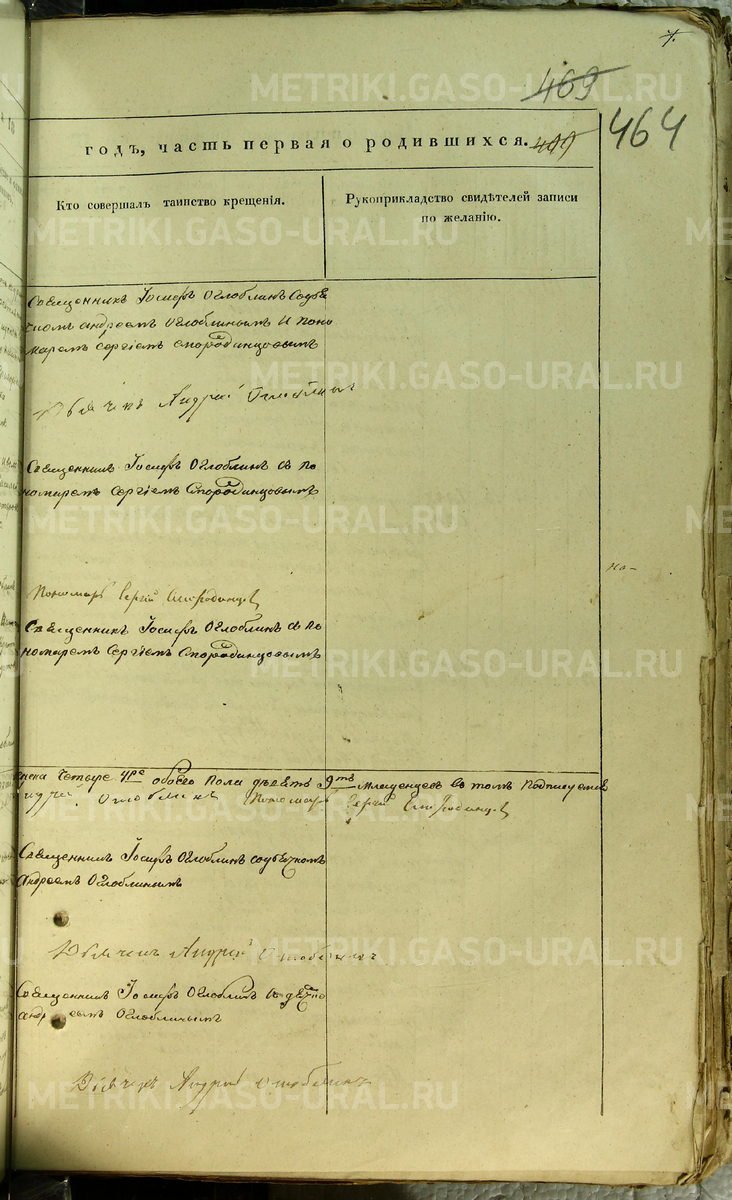 469
годъ, часть первая о родившихся.
499
464
Кто совершалъ таинство крещенія.
Рукоприкладство свидѣтелей записи
по желанію.
Священникъ Іосифъ Оглоблинъ содья
чкомъ андреемъ Оглоблинымъ и поно
маремъ Сергіемъ Смородинцовымъ
Дьячекъ Андрей Оглоблинъ
Священникъ Іосифъ Оглоблинъ съ по
номаремъ Сергіемъ Смородинцовымъ
Пономарь Сергій Смородинцовъ
Священникъ Іосифъ Оглоблинъ съ по
номаремъ Сергіемъ Смородинцовымъ
четыре обоего пола девять младенцев въ томъ подписуемся
Оглоблинъ Пономарь Сергій Смородинцовъ
Священникъ Іосифъ Оглоблинъ содьячкомъ
андреемъ Оглоблинымъ
Дьячекъ Андрей Оглоблинъ
Священникъ Іосифъ Оглоблинъ
Оглоблинымъ
Дьячекъ Андрей Оглоблинъ
METRIKI.GASO-URAL.RU